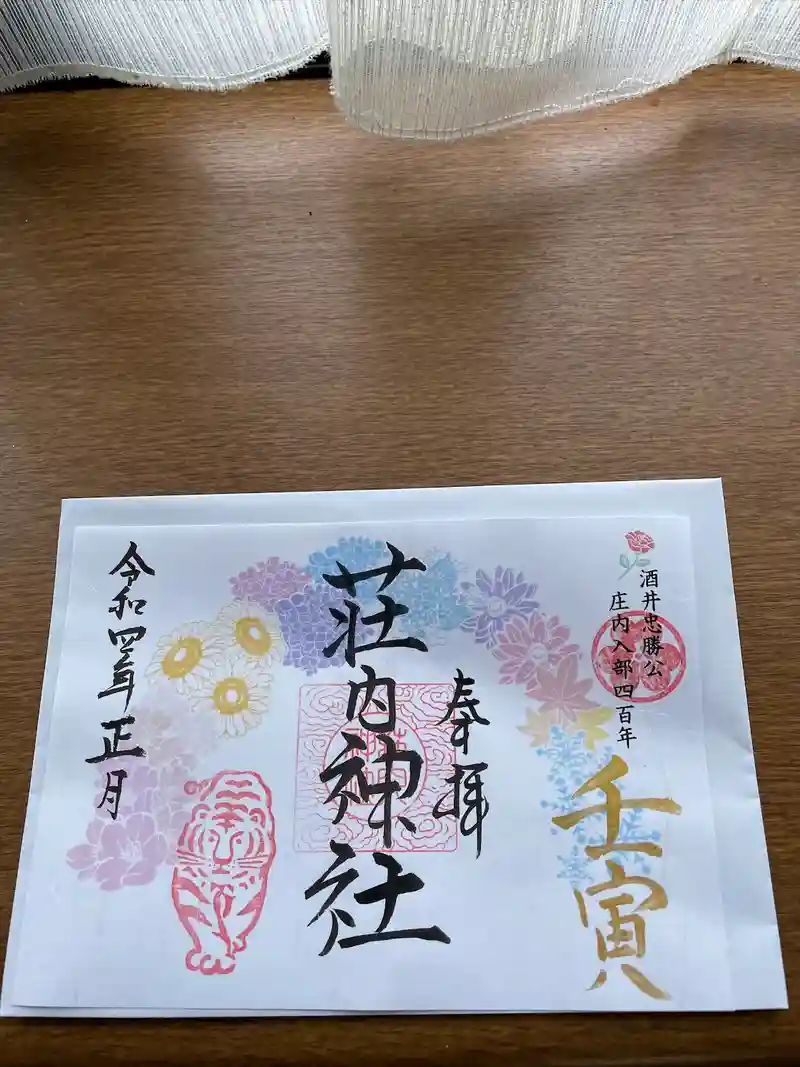 酒井忠勝公
庄内入部四百年
壬寅
奉拝
荘内神社
令和四年正月